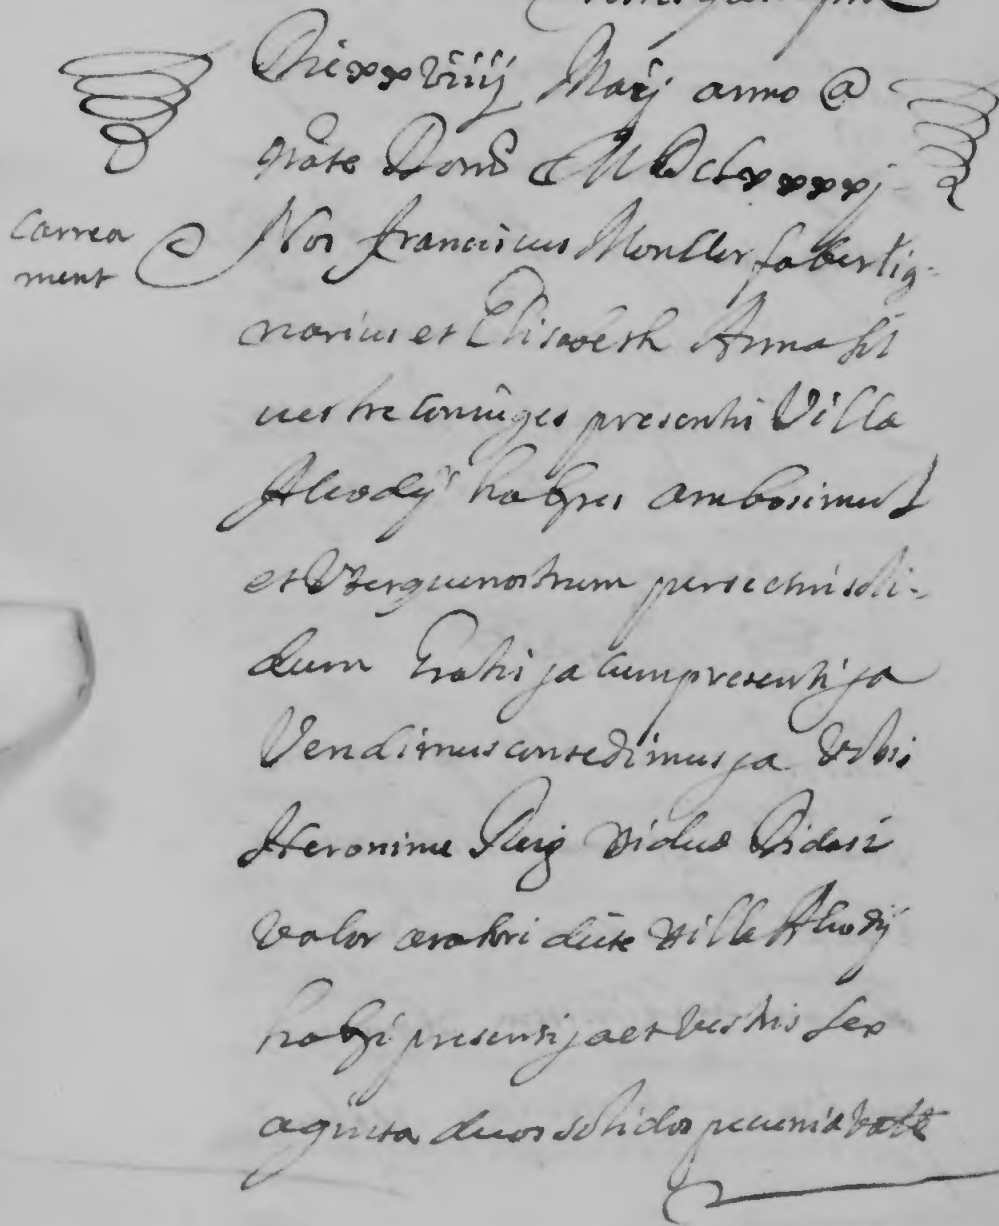 Die xxviiij Maij anno @
nate Domi MDCLxxxxj
carrea
ment
Nos franciscus Monller faber lig-
narius et Elisabeth Anna sil
uestre coniuges presentis Villa
Alcodij habres ambo simul
et Vterque nostrum per se et in soli-
dum Gratis ja cum presenti ja
Vendimus concedimus ja Vobis
Heronime Puig vidue Didaci
Valor aratori dicte ville Alcodij
habri presenti ja et vestris sex
aginta duos solidos pecunia